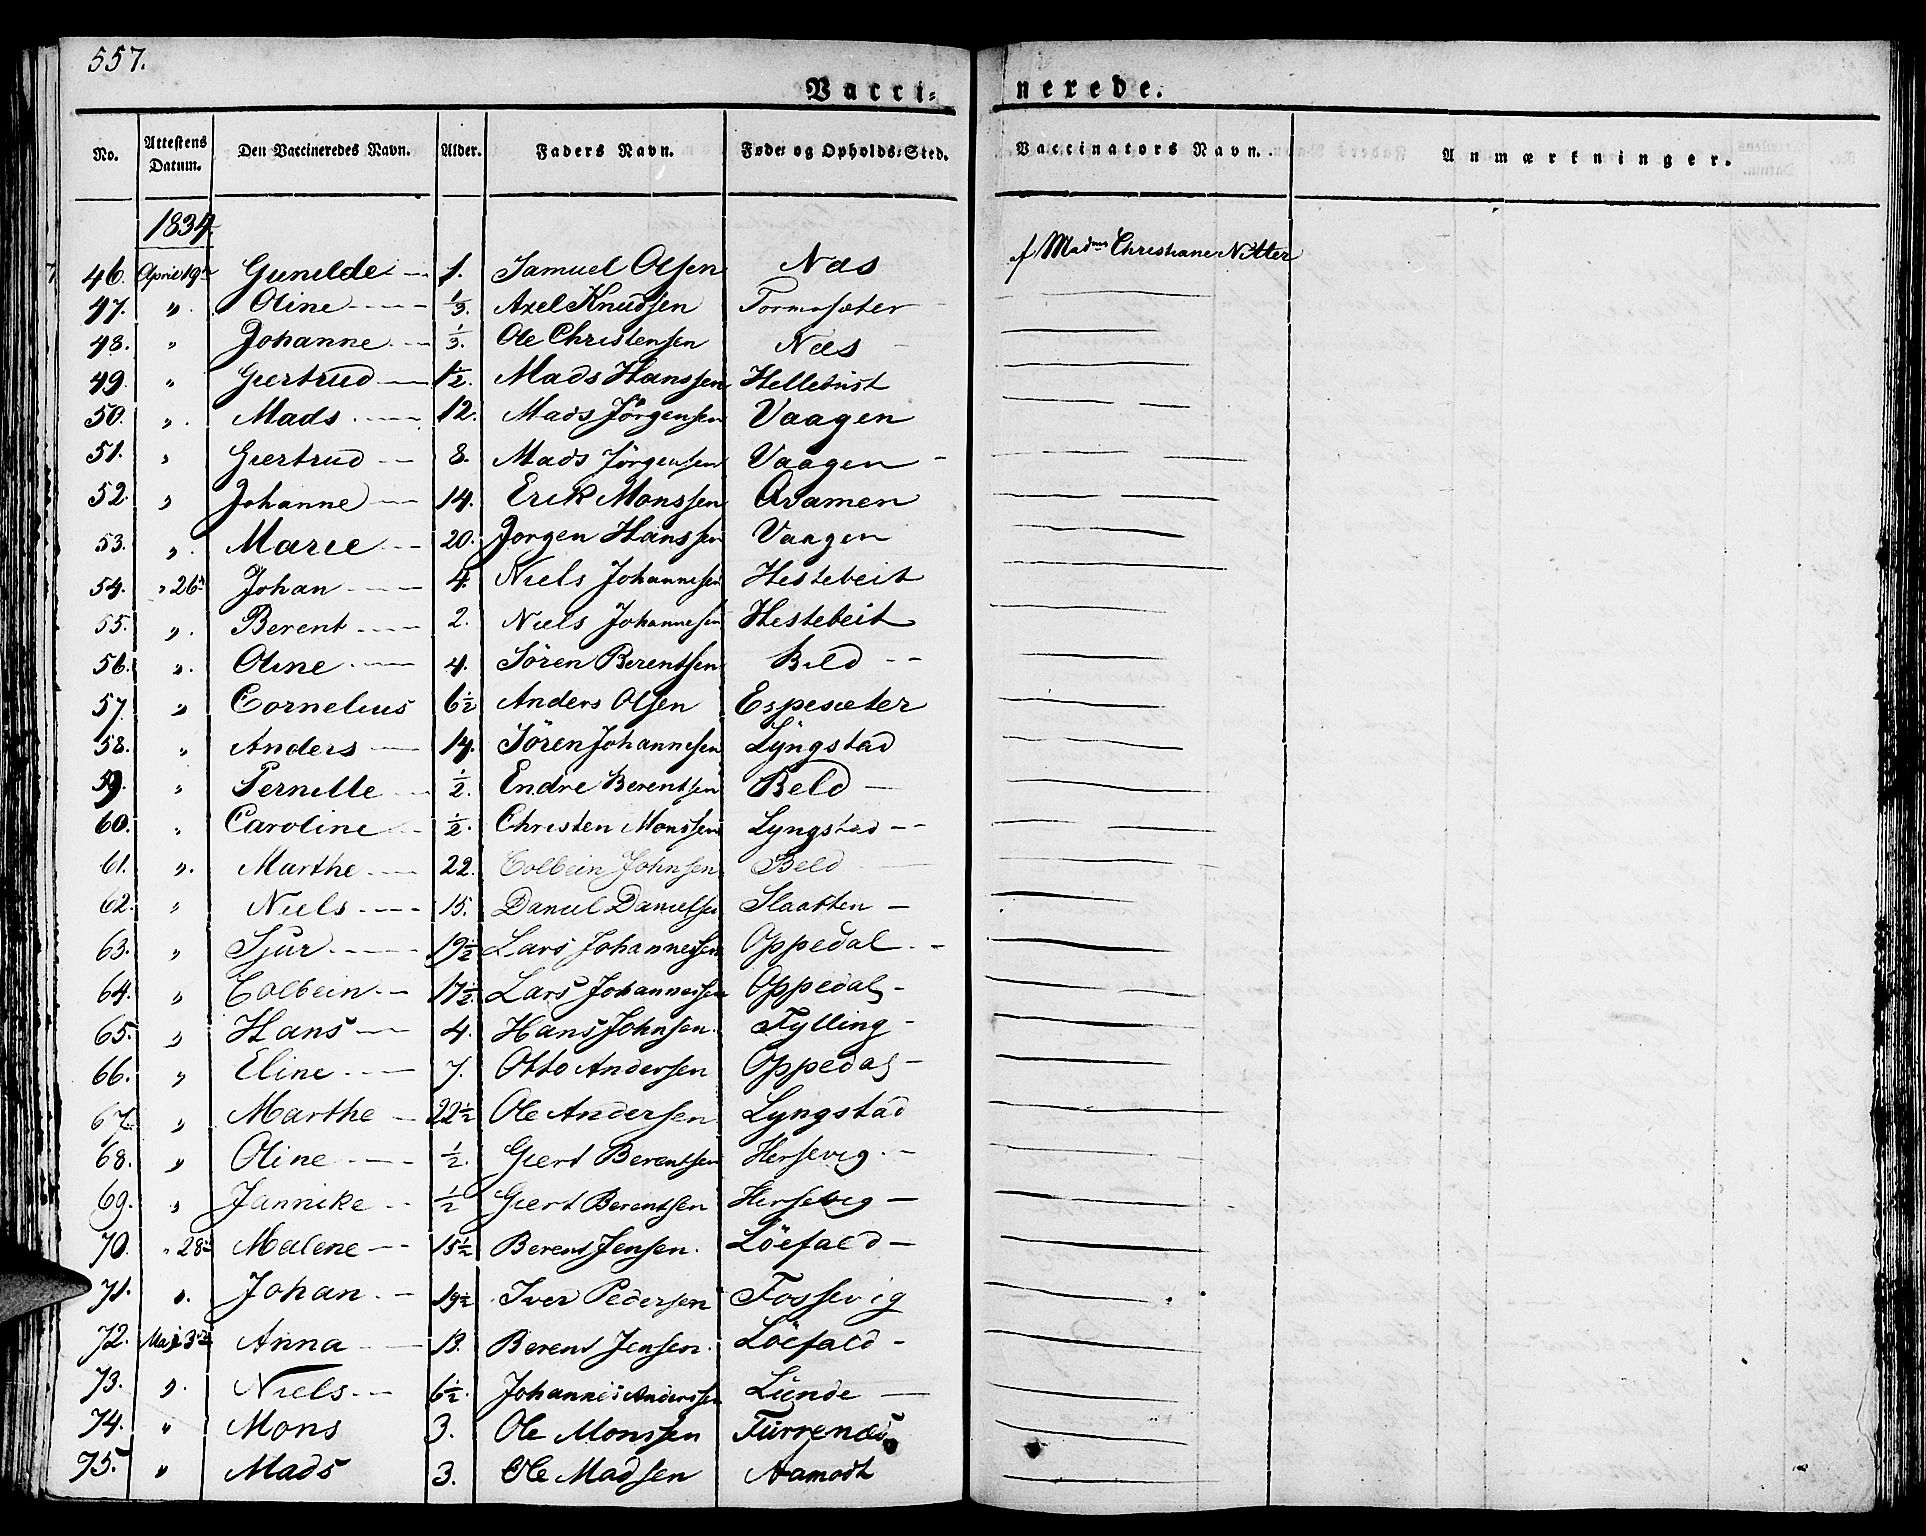 557.
Vacci=nerede.
No. Attestens Datum. Den Vaccineredes Navn. Alder. Faders Navn. Føde og Opholds=Sted. Vaccinators Navn. Anmærkninger.
1834
46. April 19de Gunilde 1. Samuel Olsen Næs f Madme Christiane Nitter
47. " Oline 1/3. Axel Knudsen Tormosæter
48. " Johanne 1/3. Ole Christensen Næs
49. " Giertrud 1 1/2. Mads Hanssen Helletvist
50. " Mads 12. Mads Jørgensen Vaagen
51. " Giertrud 8. Mads Jørgensen Vaagen
52. " Johanne 14. Erik Monssen Qvamen
53. " Marie 20. Jørgen Hanssen Vaagen
54. " 26de Johan 4. Niels Johannesen Hestebeit
55. " Berent 2. Niels Johannesen Hestebeit
56. " Oline 4. Søren Berentsen Beld
57. " Cornelius 6 1/2 Anders Olsen Espesæter
58. " Anders 14. Søren Johannesen Lÿngstad
59. " Pernille 1/2. Endre Berentsen Beld
60. " Caroline 1/2. Christen Monssen Lyngstad
61. " Marthe 22. Colbein Johnsen Beld
62. " Niels 15. Daniel Danielsen Slaatten
63. " Sjur 19 1/2 Lars Johannessen Oppedal
64. " Colbein 17 1/2 Lars Johannessen Oppedal
65. " Hans 4. Hans Johnsen Fylling
66. " Eline 7. Otto Andersen Oppedal
67. " Marthe 22 1/2 Ole Andersen Lyngstad
68. " Oline 1/2. Giert Berentsen Hersevig
69. " Jannike 1/2 Giert Berentsen Hersevig
70. " 28de Malene 15 1/2 Berent Jensen. Löefald
71. " Johan 19 1/2 Iver Pedersen Fossevig
72. Maj 3de Anna 13. Berent Jensen. Löefald
73. " Niels 6 1/2. Johannes Anderssen Lunde
74. " Mons 3. Ole Monssen Furrenæs
75. " Mads 3. Ole Madsen Aamodt